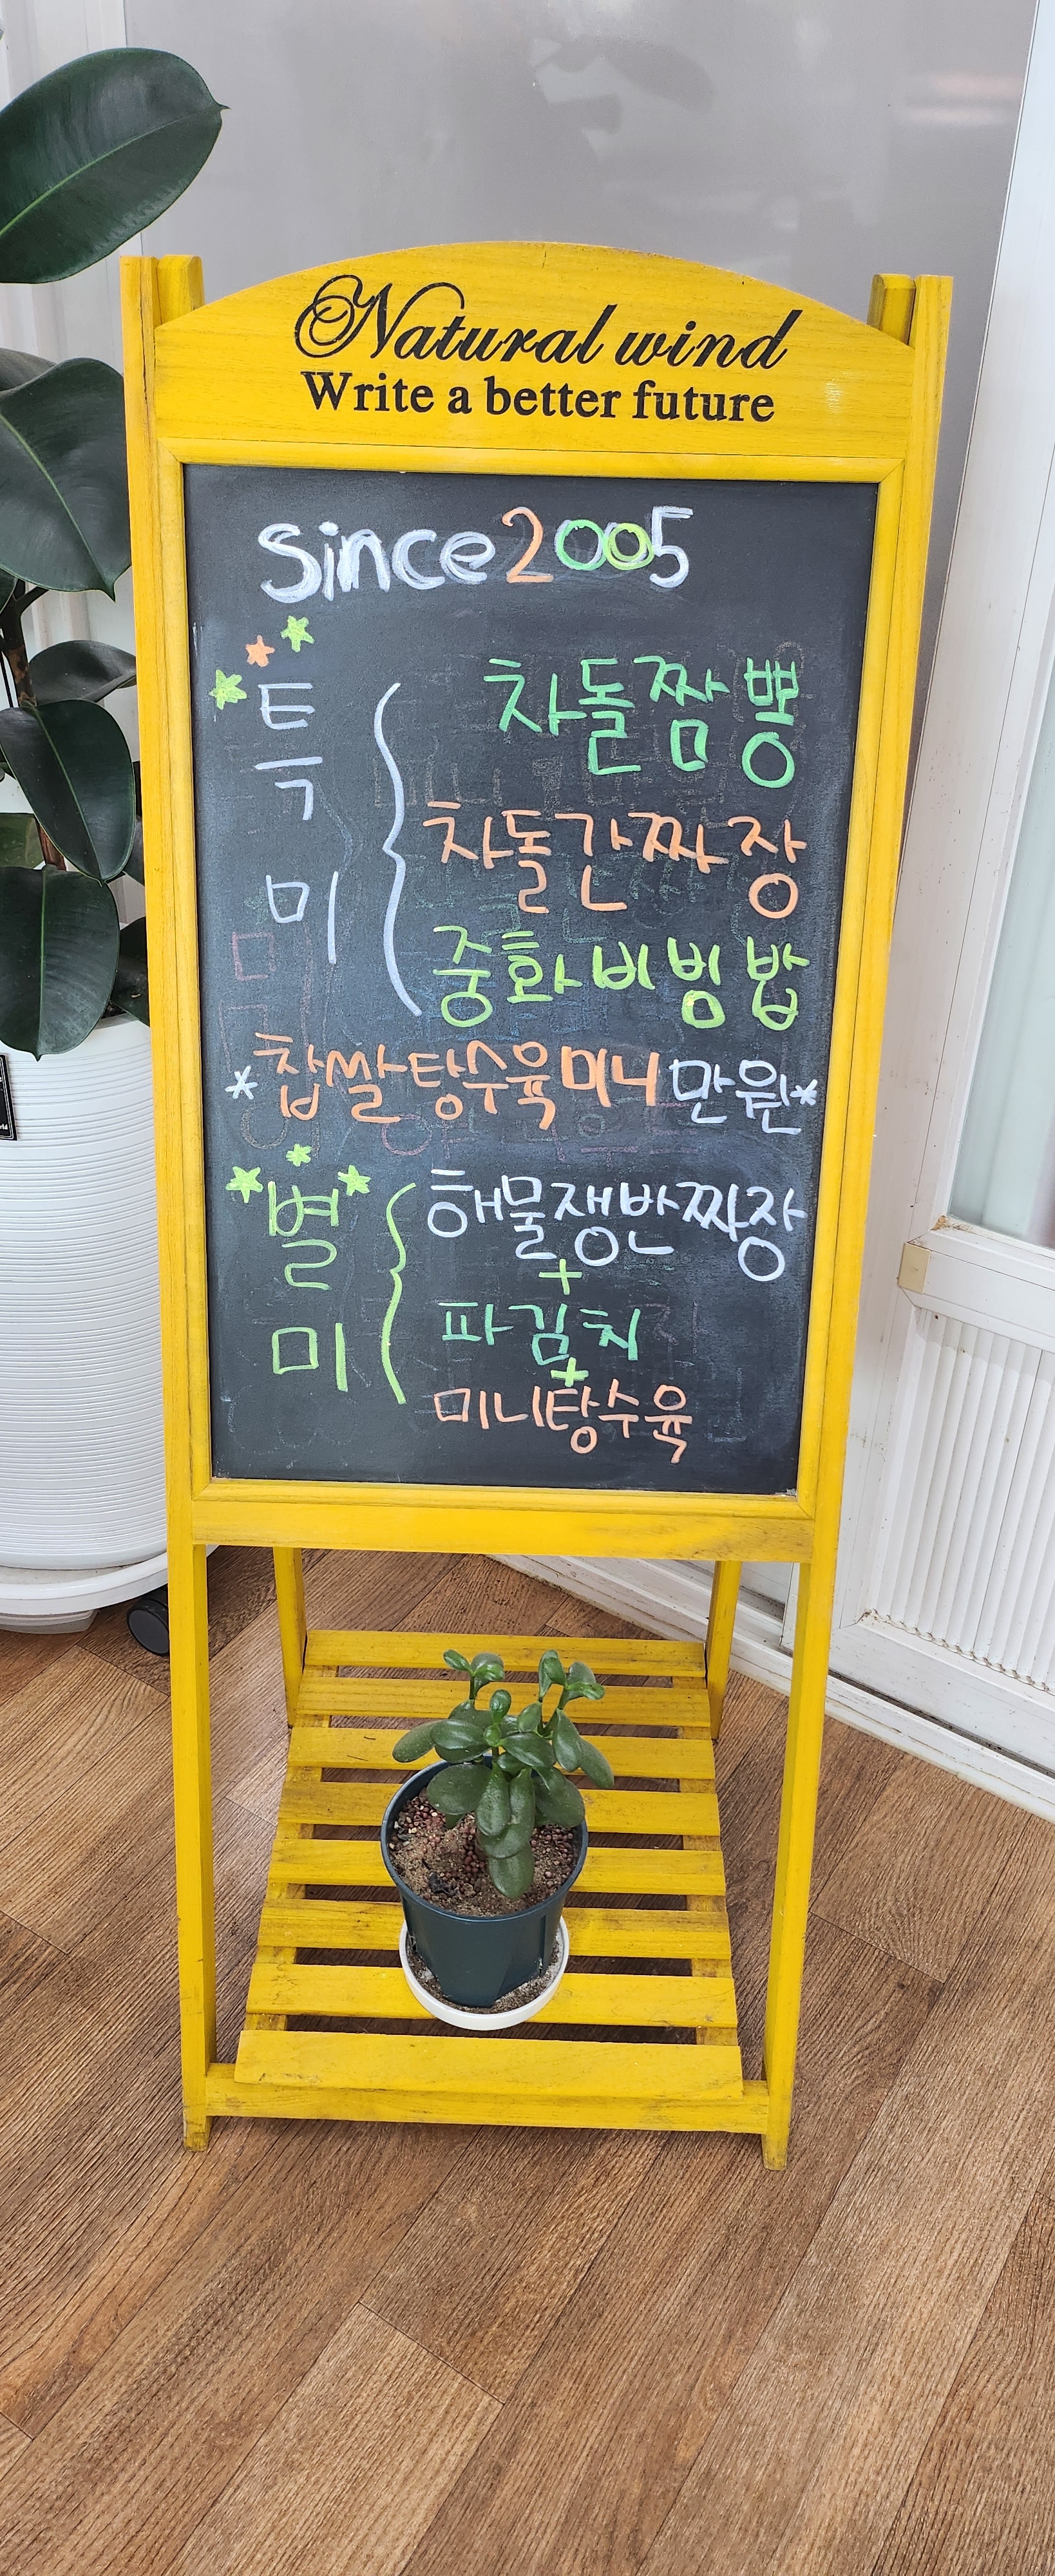 Natural wind
Write a better future
Since 2005
특미
차돌짬뽕
차돌간짜장
중화비빔밥
*찹쌀탕수육미니 만원*
별미
해물쟁반짜장
+
파김치
+
미니탕수육